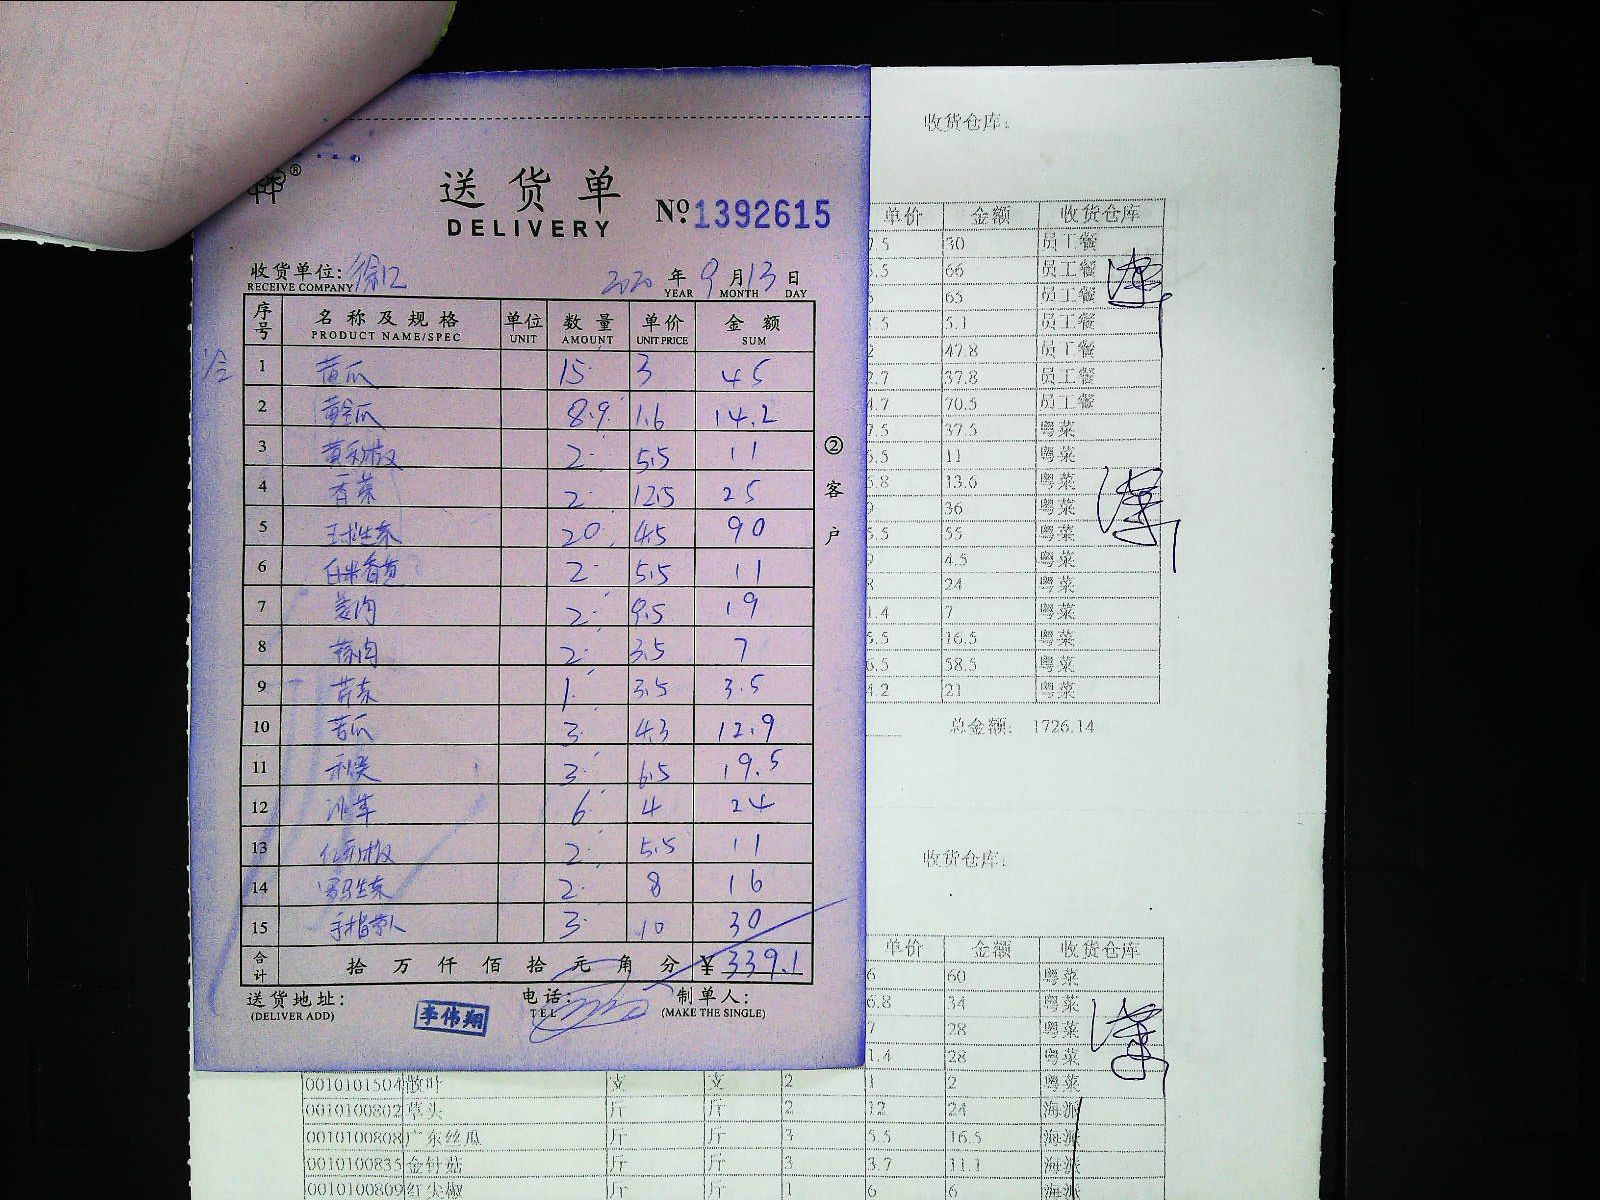 送货单
DELIVERY
№ 1392615
收货单位:徐汇 2020 年 9 月 13 日
RECEIVE COMPANY YEAR MONTH DAY
序号 名称及规格 单位 数量 单价 金额
PRODUCT NAME/SPEC UNIT AMOUNT UNIT PRICE SUM
1 黄瓜 15 3 45
2 黄金瓜 8.9 1.6 14.2
3 黄彩椒 2 5.5 11
4 香菜 2 12.5 25
5 球生菜 20 4.5 90
6 2 5.5 11
7 姜肉 2 9.5 19
8 蒜肉 2 3.5 7
9 芹菜 1 3.5 3.5
10 苦瓜 3 4.3 12.9
11 3 6.5 19.5
12 冰草 6 4 24
13 红彩椒 2 5.5 11
14 罗马生菜 2 8 16
15 3 10 30
合计 拾 万 仟 佰 拾 元 角 分 ¥ 339.1
送货地址: 电话: 制单人:
(DELIVER ADD) TEL (MAKE THE SINGLE)
李伟翔
②客户
收货仓库:
单价 金额 收货仓库
7.5 30 员工餐
3.3 66 员工餐
63 员工餐
5.1 员工餐
2 47.8 员工餐
2.7 37.8 员工餐
4.7 70.5 员工餐
7.5 37.5 粤菜
5.5 11 粤菜
6.8 13.6 粤菜
9 36 粤菜
5.5 55 粤菜
4.5 粤菜
8 24 粤菜
1.4 7 粤菜
5.5 16.5 粤菜
6.5 58.5 粤菜
4.2 21 粤菜
总金额: 1726.14
收货仓库:
单价 金额 收货仓库
6 60 粤菜
6.8 34 粤菜
7 28 粤菜
1.4 28 粤菜
0010101504 散叶 支 支 2 1 2 粤菜
0010100802 草头 斤 斤 2 12 24 海派
0010100808 广东丝瓜 斤 斤 3 5.5 16.5 海派
0010100835 金针菇 斤 斤 3 3.7 11.1 海派
0010100809 红尖椒 斤 斤 1 6 6 海派